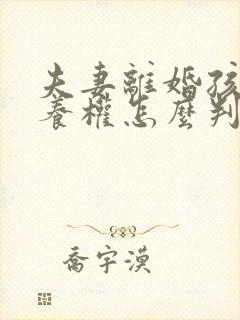 夫妻離婚孩
養權怎麼判
喬宇漠